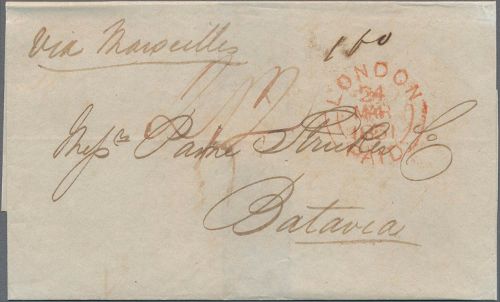 Via Marseilles
150
LONDON
24
MAR
1851
PAID
Messrs Paine Stricker & Co
Batavia